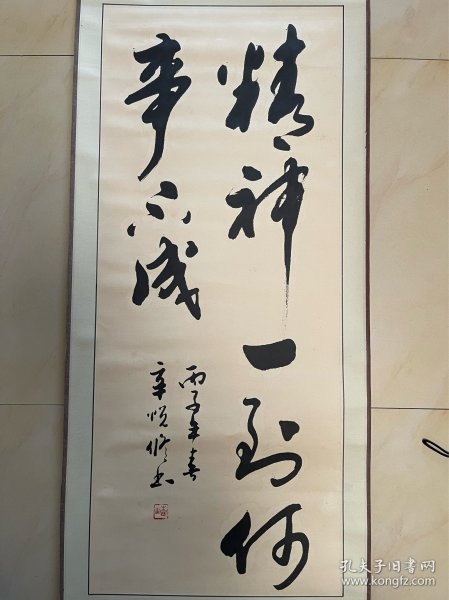 精神一到何
事不成
丙子年春
辛悦修书
孔夫子旧书网
www.kongfz.com